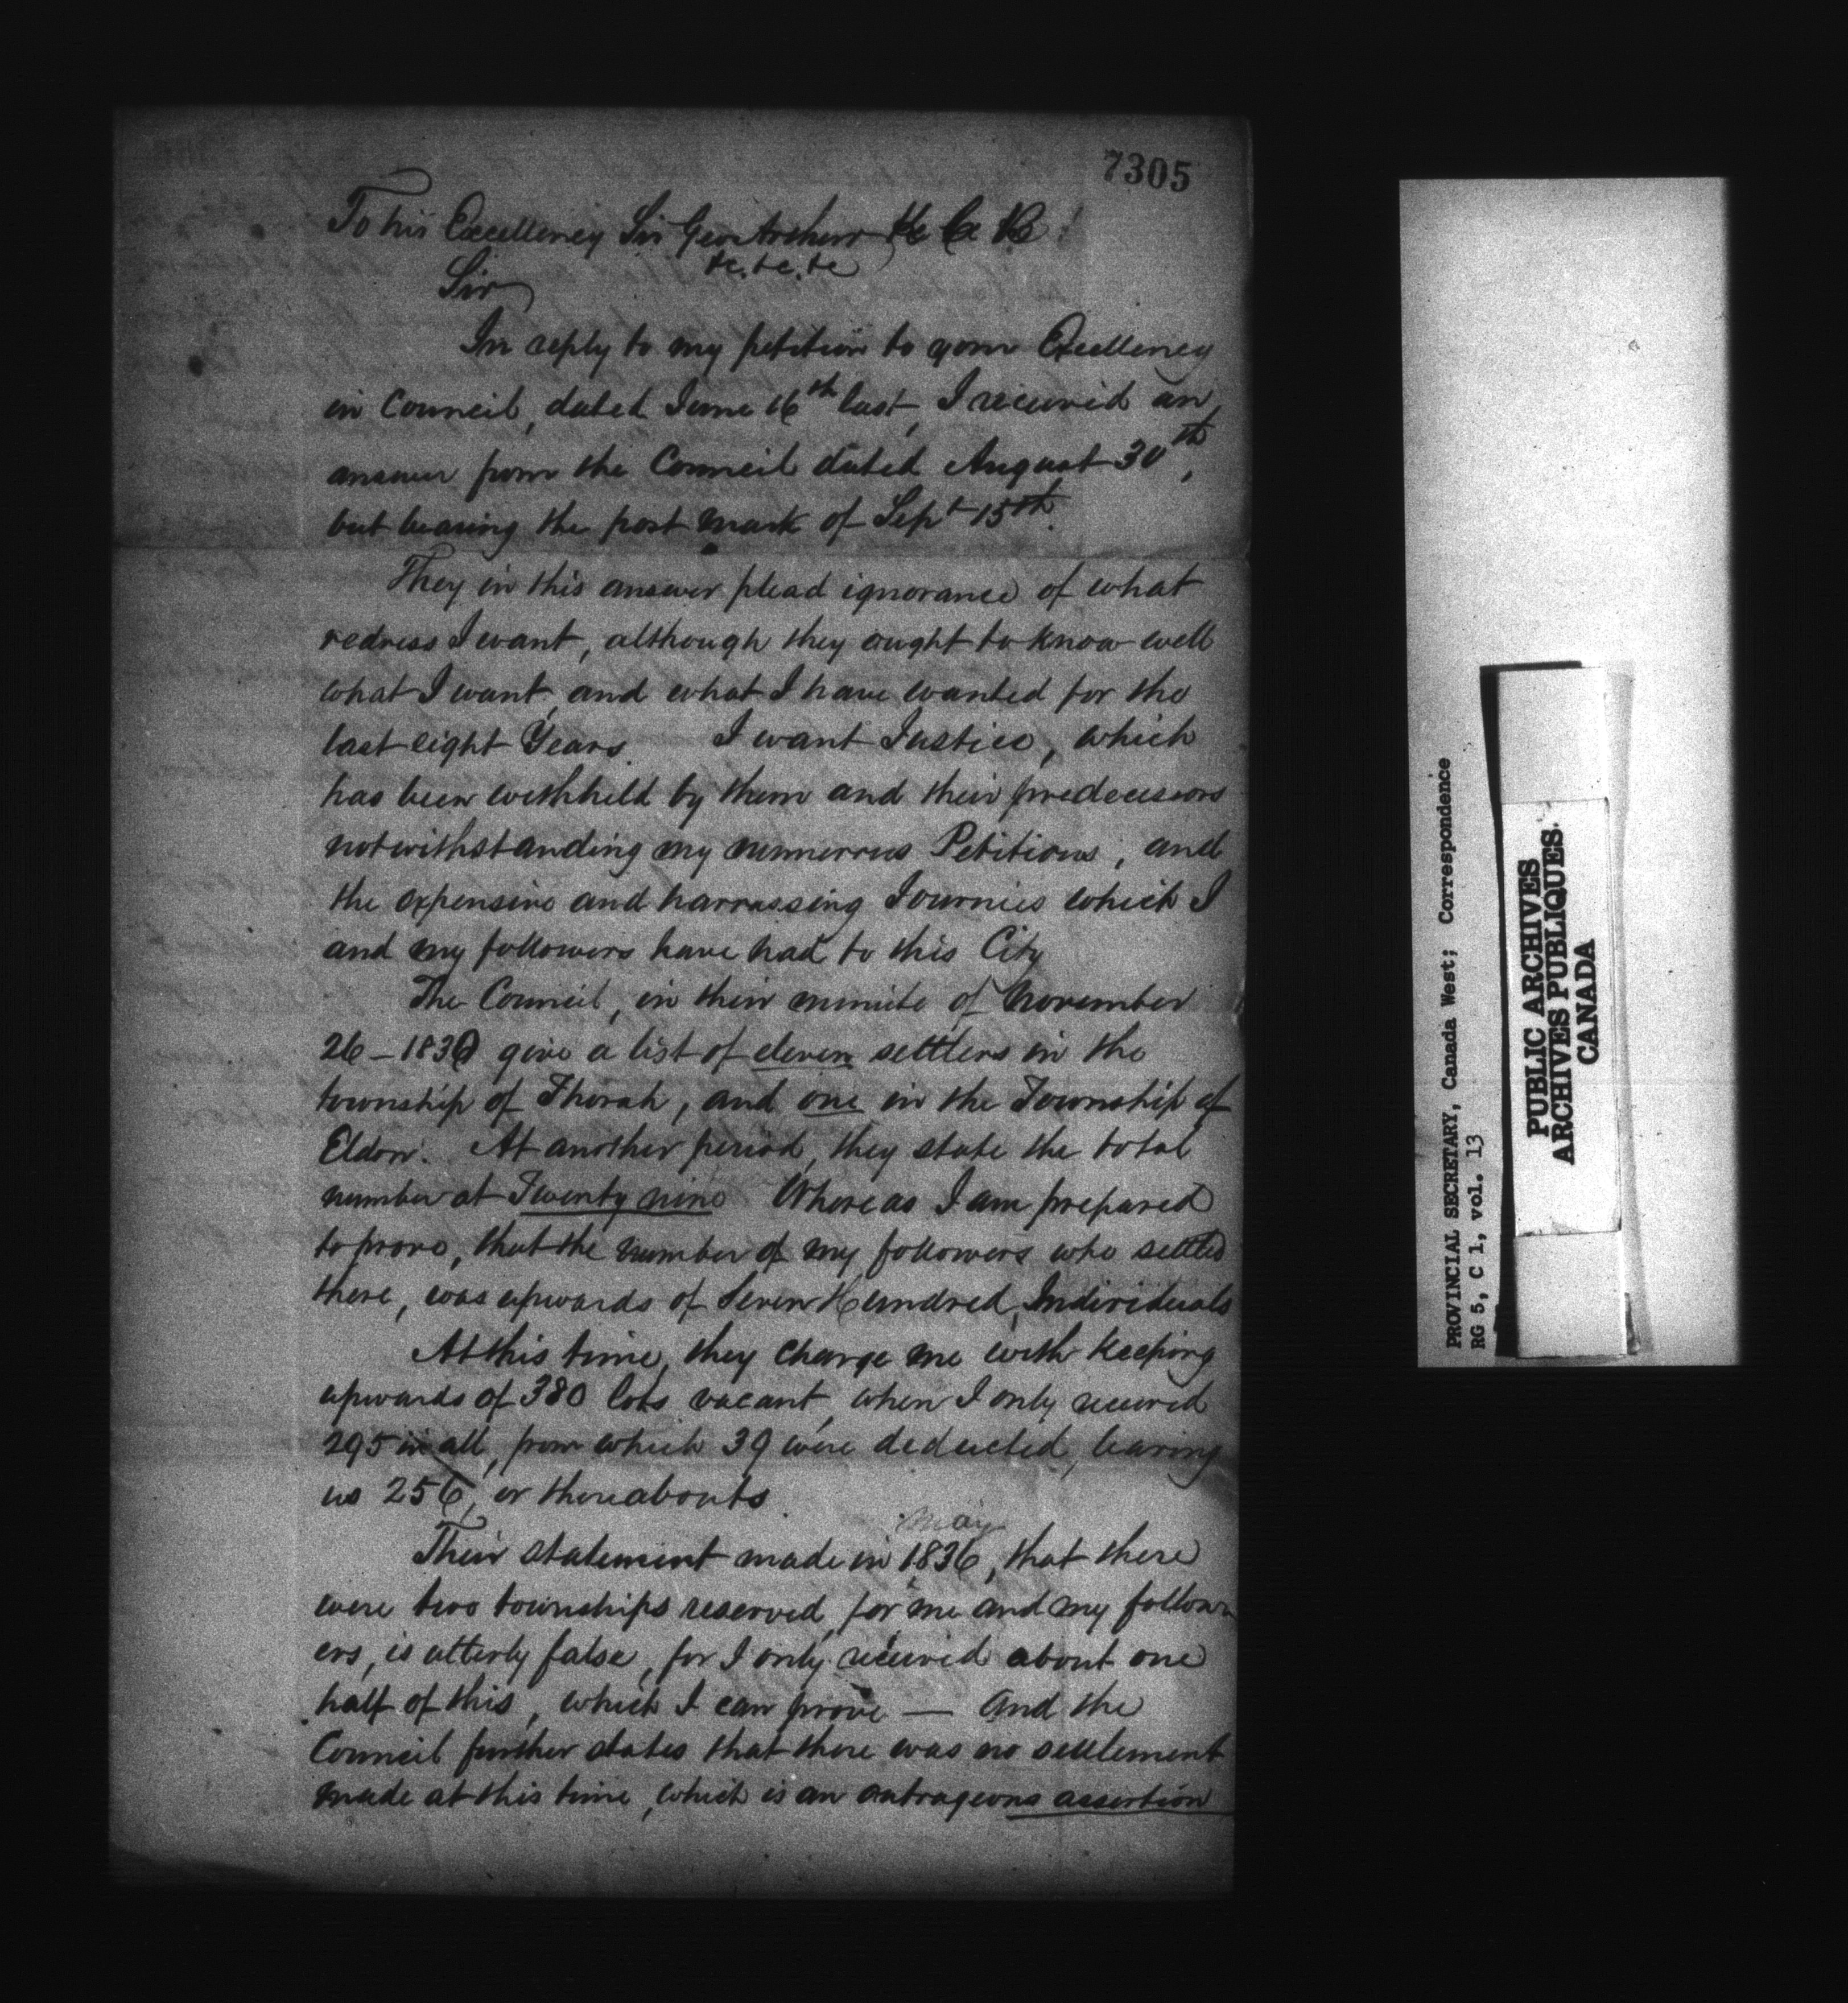 7305
To his Excellency Sir Geo Arthur K C B
&c. &c. &c
Sir
In reply to my petition to your Excellency
in Council, dated June 16th last, I received an
answer from the Council dated August 30th,
but bearing the post mark of Sept 15th.
They in this answer plead ignorance of what
redress I want, although they ought to know well
what I want, and what I have wanted for the
last eight Years. I want Justice, which
has been withheld by them and their predecessors
notwithstanding my numerous Petitions, and
the expensive and harrassing Journies which I
and my followers have had to this City
The Council, in their minute of November
26 - 1830 give a list of eleven settlers in the
township of Thorah, and one in the Township of
Eldon. At another period, they state the total
number at Twenty nine Whereas I am prepared
to prove, that the number of my followers who settled
there, was upwards of Seven Hundred, Individuals
At this time, they charge me with keeping
upwards of 380 lots vacant, when I only received
295 in all, from which 39 were deducted, leaving
us 256, or thereabouts.
may
Their statement made in 1836, that there
were two townships reserved, for me and my follow
ers, is utterly false, for I only received about one
half of this, which I can prove — And the
Council further states that there was no settlement
made at this time, which is an outrageous assertion
PROVINCIAL SECRETARY, Canada West; Correspondence
RG 5, C 1, vol. 13
PUBLIC ARCHIVES
ARCHIVES PUBLIQUES
CANADA